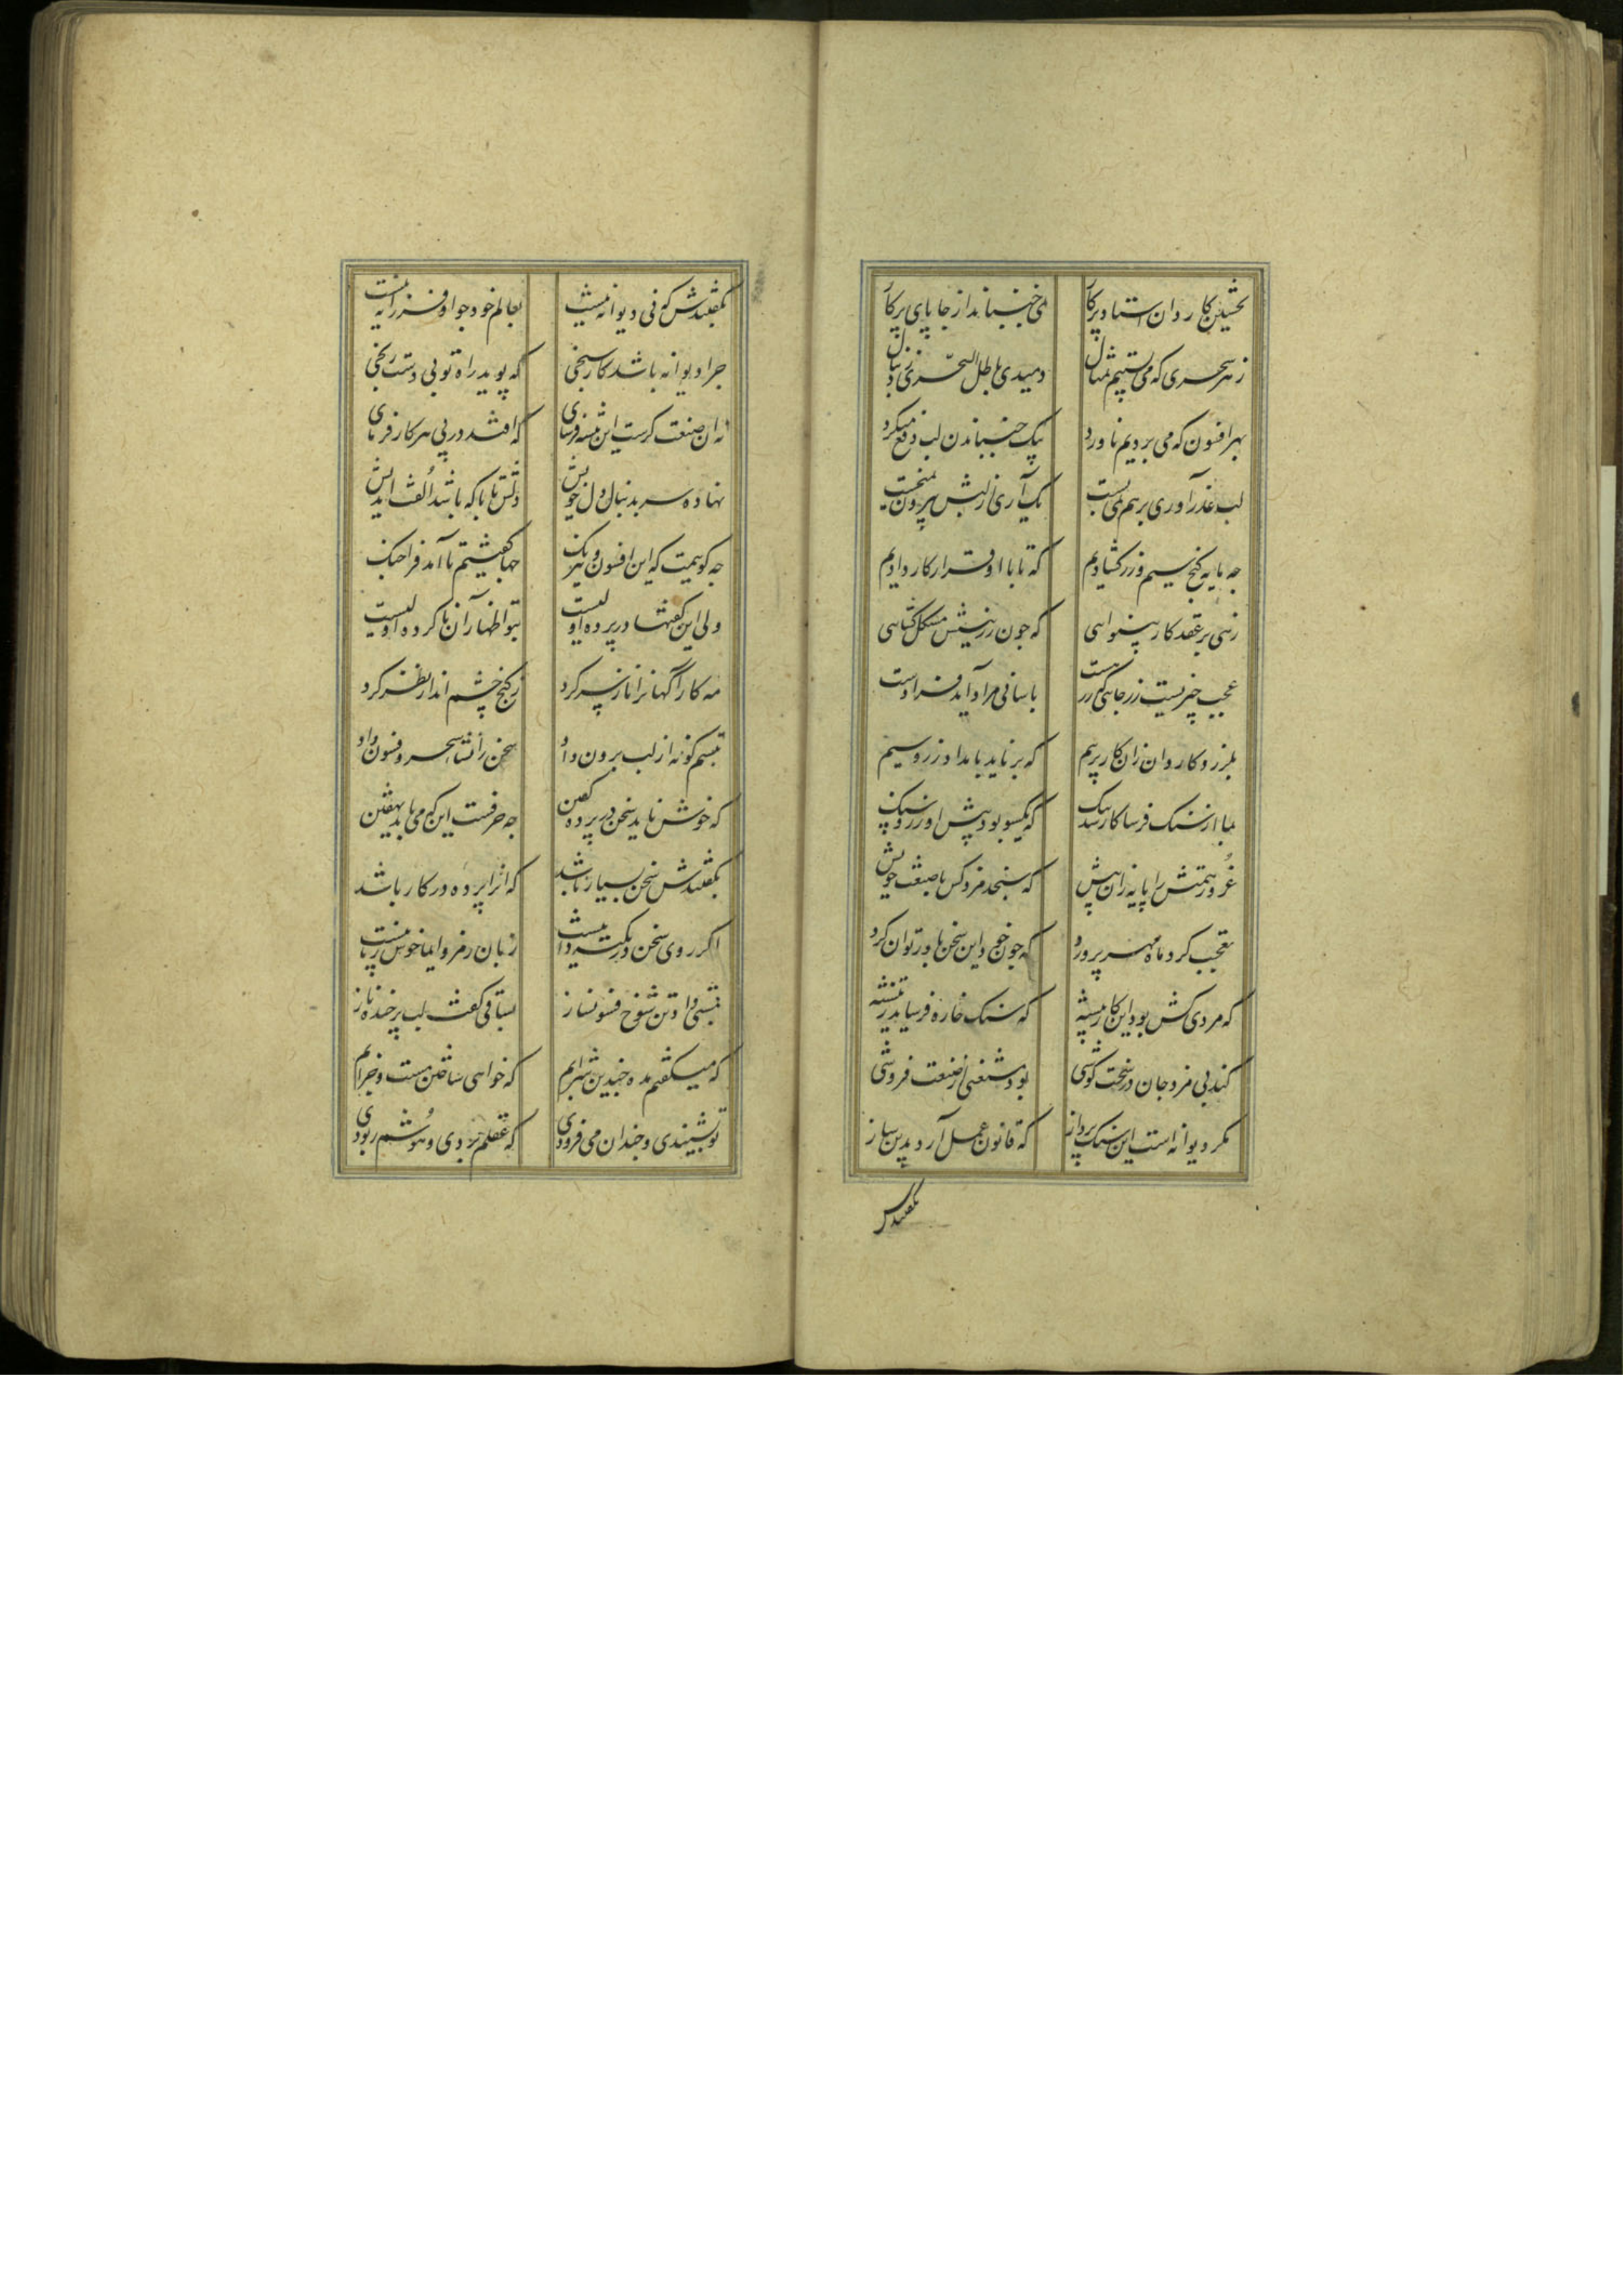 نخستین کاردان استاد پرکار نمی جنباند از جا پای پرکار
ز هر سحری که می بستیم تمثال دمیدی باطل السحری ز دنبال
بهر افسون که می بردیم ناورد بیک جنباندن لب دفع میکرد
لب عذر آوری بر هم نمی بست یک آری از لبش بیرون نمیجست
چه مایه گنج سیم و زر گشادیم که تا با او قرار کار دادیم
زهی بر عقد کار بینوایی که چون زر نیستش مشکل گشایی
عجب چیزیست زر جایی که زر هست باسانی مراد آید فرادست
بلرزد کاردان زان کار پر بیم که بر ناید بامداد زر و سیم
بما از سنک فرسا کار شد تنک که یکسو بود پیش او زر و سنک
غرور همتش را پایه زان بیش که سنجد مزد کس با صنعت خویش
تعجب کرد ماه مهر پرورد که چون خود این سخن باور توان کرد
که مردی کش بود این کار پیشه که سنک خاره فرساید بتیشه
کند بی مزد جان در سخت کوشی بود مستغنی از صنعت فروشی
مکر دیوانه است این سنک پرداز که قانون عمل آرد بدین ساز
بگفتندش
بگفتندش که نی دیوانه نیست بعالم خود جو او فرزانه نیست
چرا دیوانه باشد کار سنجی که پوید راه تو بی دسترنجی
نه ان صنعت کرست این تیشه فرسای که افتد در پی هر کارفرمای
نهاده سر بدنبال دل خویش دلش تا با که باشد الفت اندیش
چه گویمت که این افسون و نیرنک چها گفتیم تا آمد فراچنک
ولی این گفتها در پرده اولیست بتو اظهار آن ناکرده اولیست
مه کارآگهانرا ناز سر کرد ز کنج چشم انداز نظر کرد
تبسم گونه از لب برون داد سخن را نشاء سحر و فسون داد
که خوش ناید سخن در پرده گفتن چه حرفست این که می باید نهفتن
بگفتندش سخن بسیار باشد که انرا پرده در کار باشد
اگر روی سخن در نکته دان نیست زبان رمز و ایما خوش زبانیست
تبسمی داد آن شوخ فسونساز بساقی گفت لب پر خنده ناز
که میگفتم مده چندین شرابم که خواهی ساختن مست و خرابم
تو نشنیدی و چندان می فزودی که عقلم بردی و هوشم ربودی